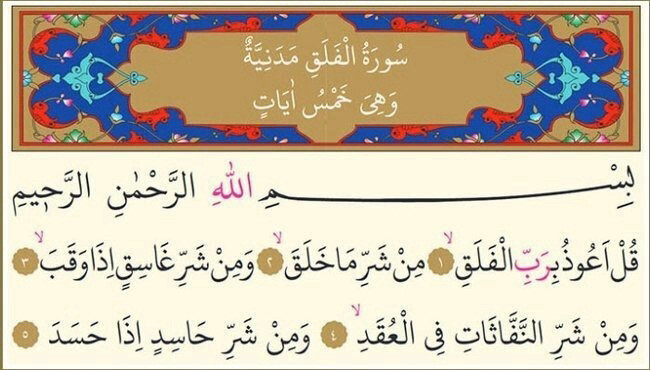 سُورَةُ الْفَلَقِ مَدَنِيَّةٌ
وَهِىَ خَمْسُ اٰيَاتٍ
بِسْمِ اللّٰهِ الرَّحْمٰنِ الرَّحٖيمِ
قُلْ اَعُوذُ بِرَبِّ الْفَلَقِۙ ١ مِنْ شَرِّ مَا خَلَقَۙ ٢ وَمِنْ شَرِّ غَاسِقٍ اِذَا وَقَبَۙ ٣
وَمِنْ شَرِّ النَّفَّاثَاتِ فِى الْعُقَدِۙ ٤ وَمِنْ شَرِّ حَاسِدٍ اِذَا حَسَدَ ٥